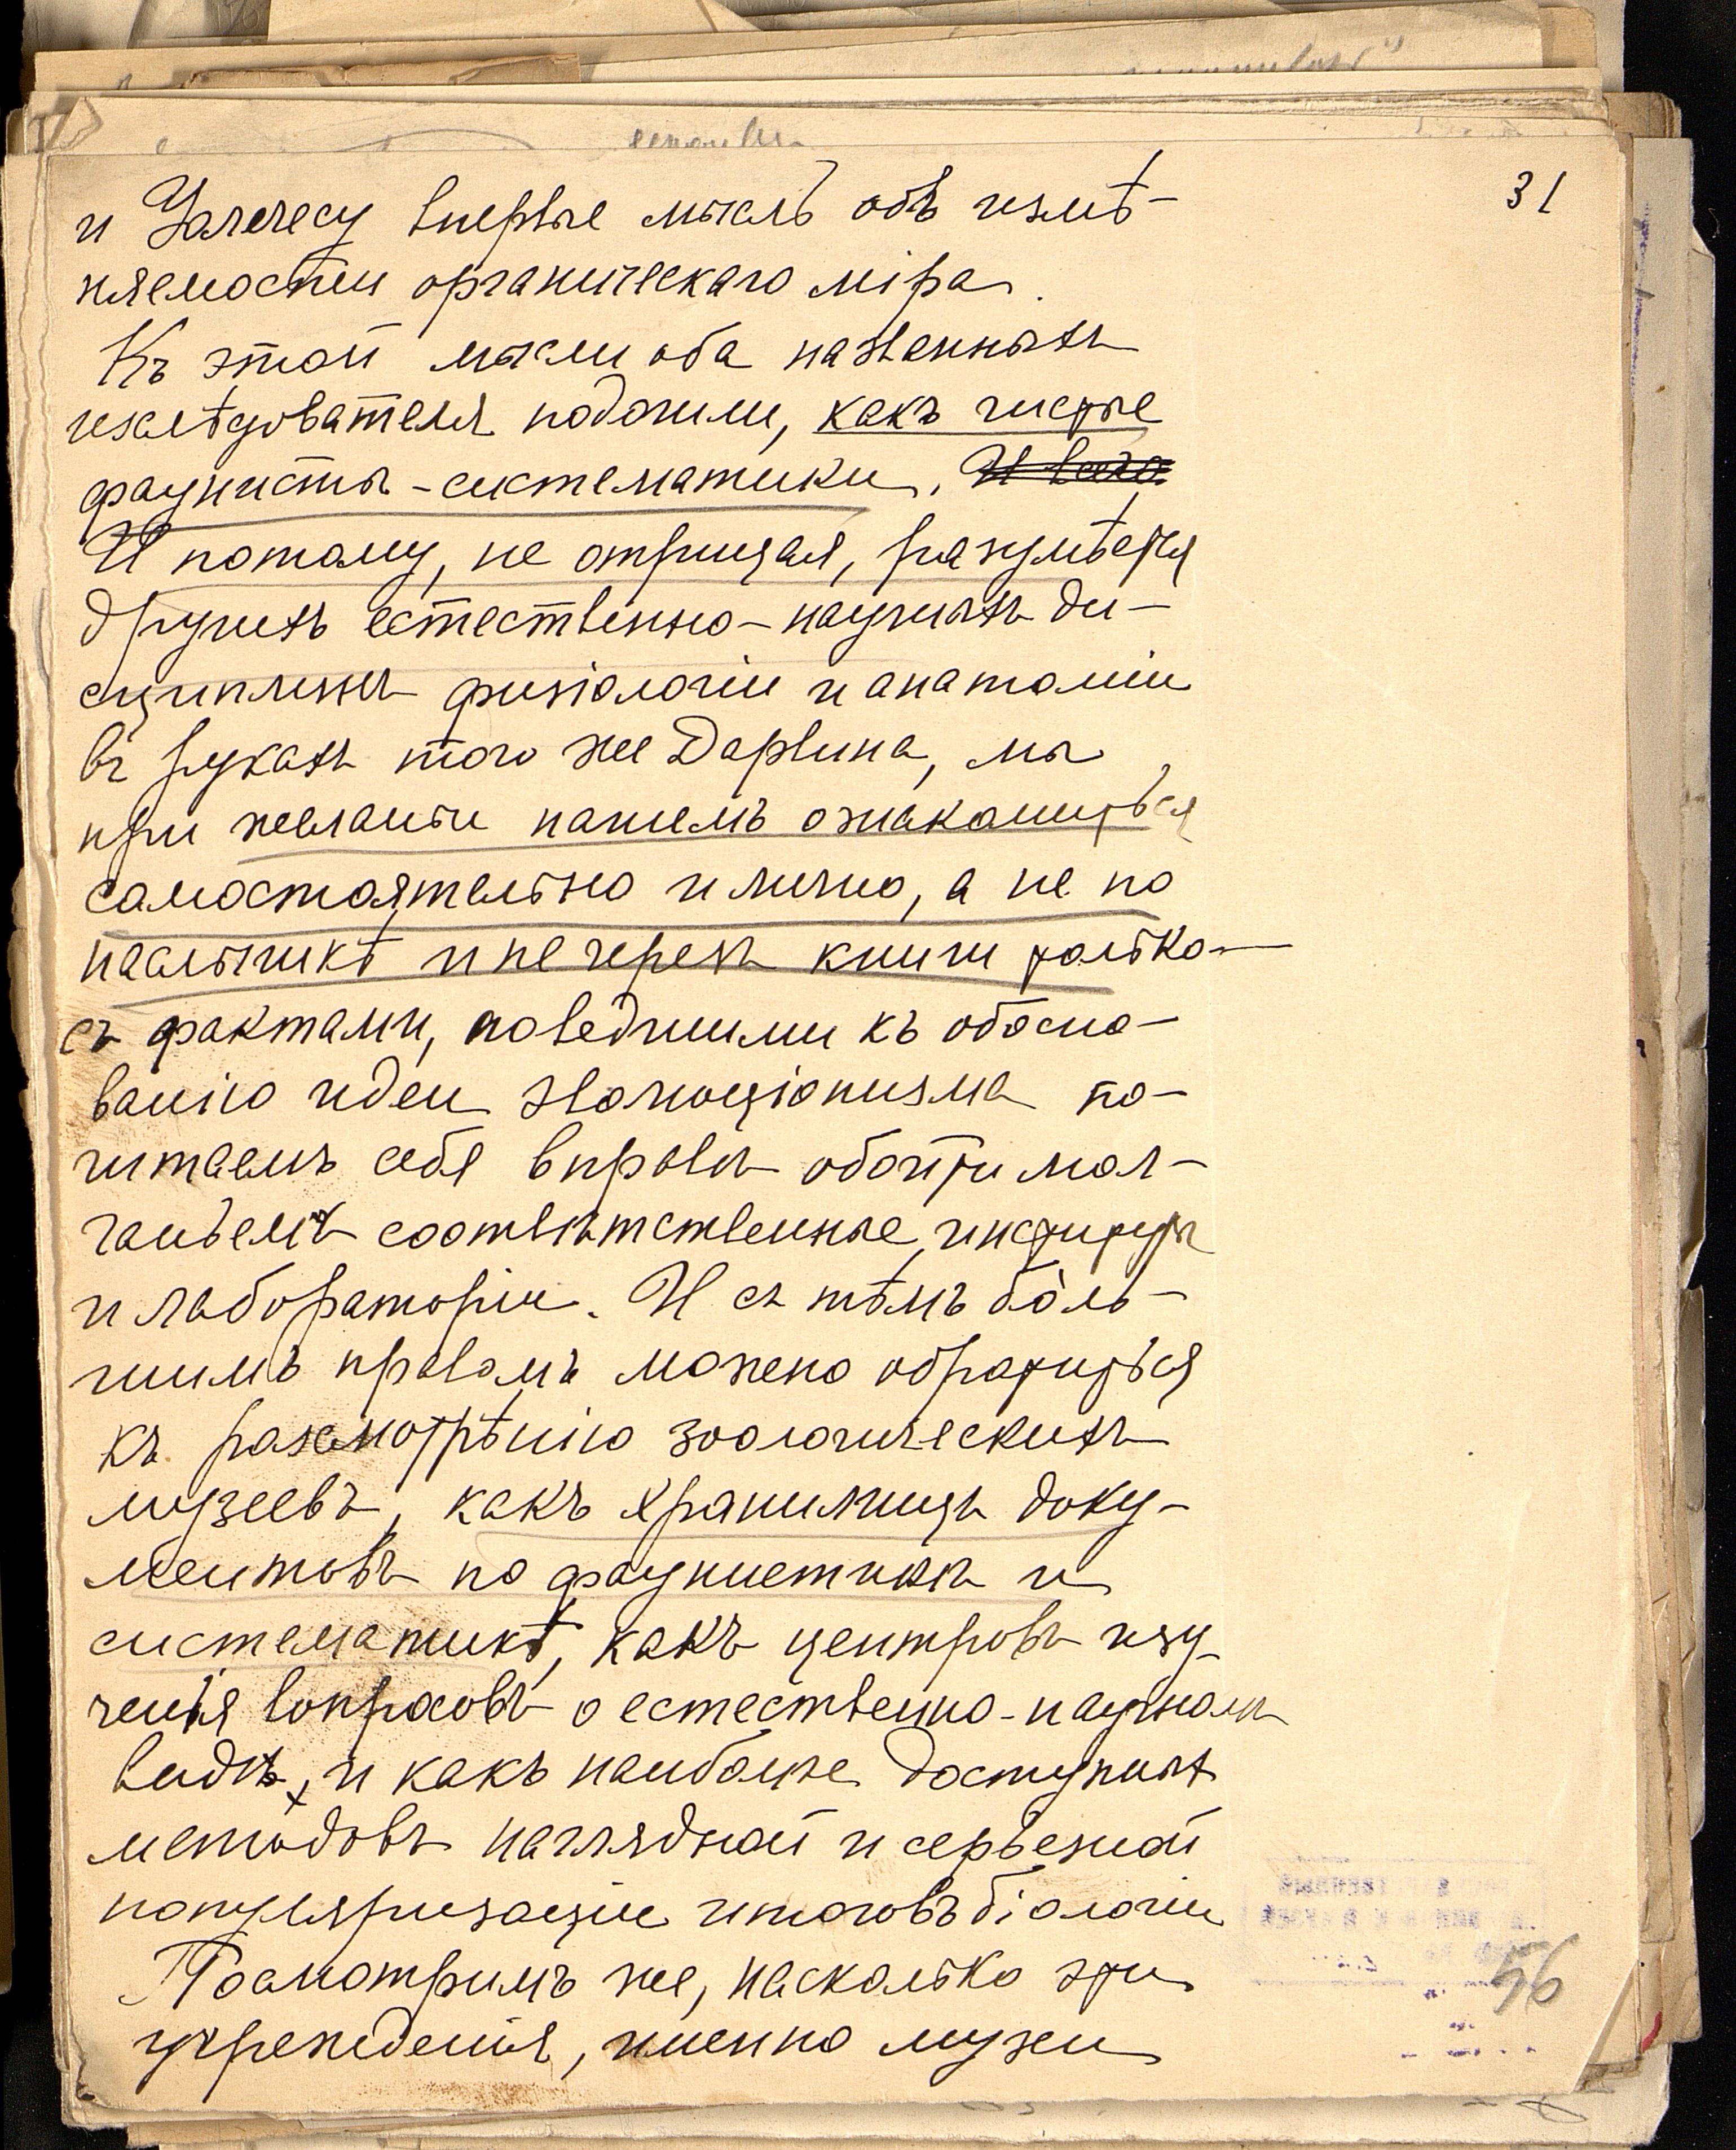 31
и Уаллесу впервые мысль объ измѣ-
няемости органическаго міра.
Къ этой мысли оба названныхъ
изслѣдователя подошли, какъ чистые
фаунисты-систематики. И всего
И потому, не отрицая, разумѣется
другихъ естественно-научныхъ ди-
сциплинъ физіологіи и анатоміи
въ рукахъ того же Дарвина, мы
при желаньи нашемъ ознакомиться
самостоятельно и лично, а не по
наслышкѣ и не черезъ книги только
съ фактами, поведшими къ обосно-
ванію идеи эволюціонизма по-
читаемъ себя вправѣ обойти мол-
чаньемъ соотвѣтственные институты
и лабораторіи. И съ тѣмъ бо́ль-
шимъ правомъ можно обратиться
къ разсмотрѣнію зоологическихъ
музеевъ, какъ хранилищъ доку-
ментовъ по фаунистикѣ и
систематикѣ, какъ центровъ изу-
ченія вопросовъ о естественно-научномъ
видѣ, и какъ наиболѣе доступныхъ
методовъ наглядной и серьезной
популяризаціи итоговъ біологіи
Посмотримъ же, насколько эти
учрежденія, именно музеи
56